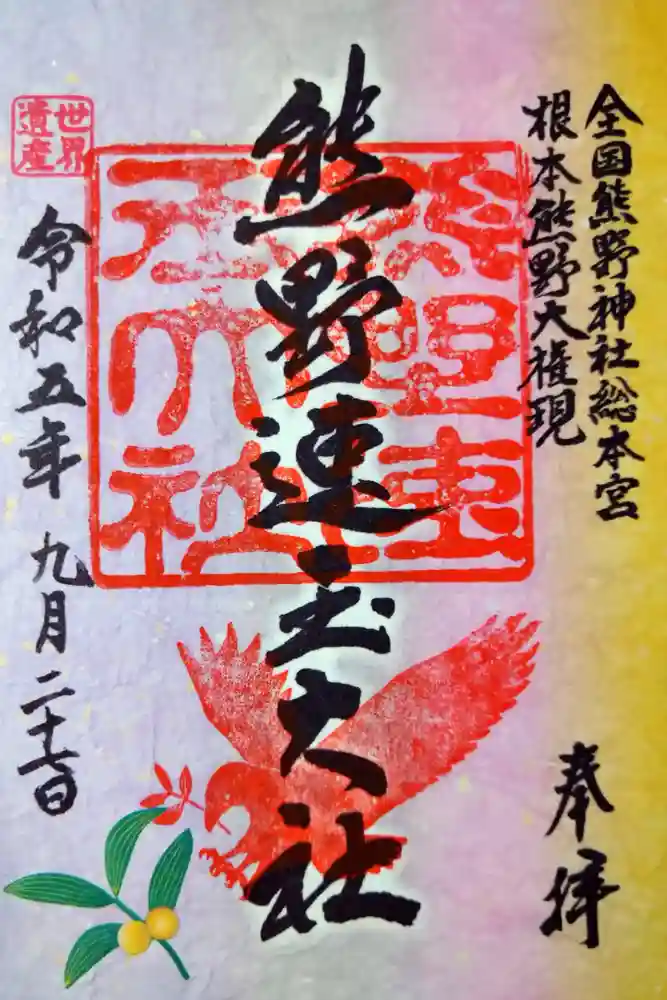 全国熊野神社総本宮
根本熊野大権現
奉拝
熊野速玉大社
熊野速
玉大社
世界
遺産
令和五年 九月二十七日